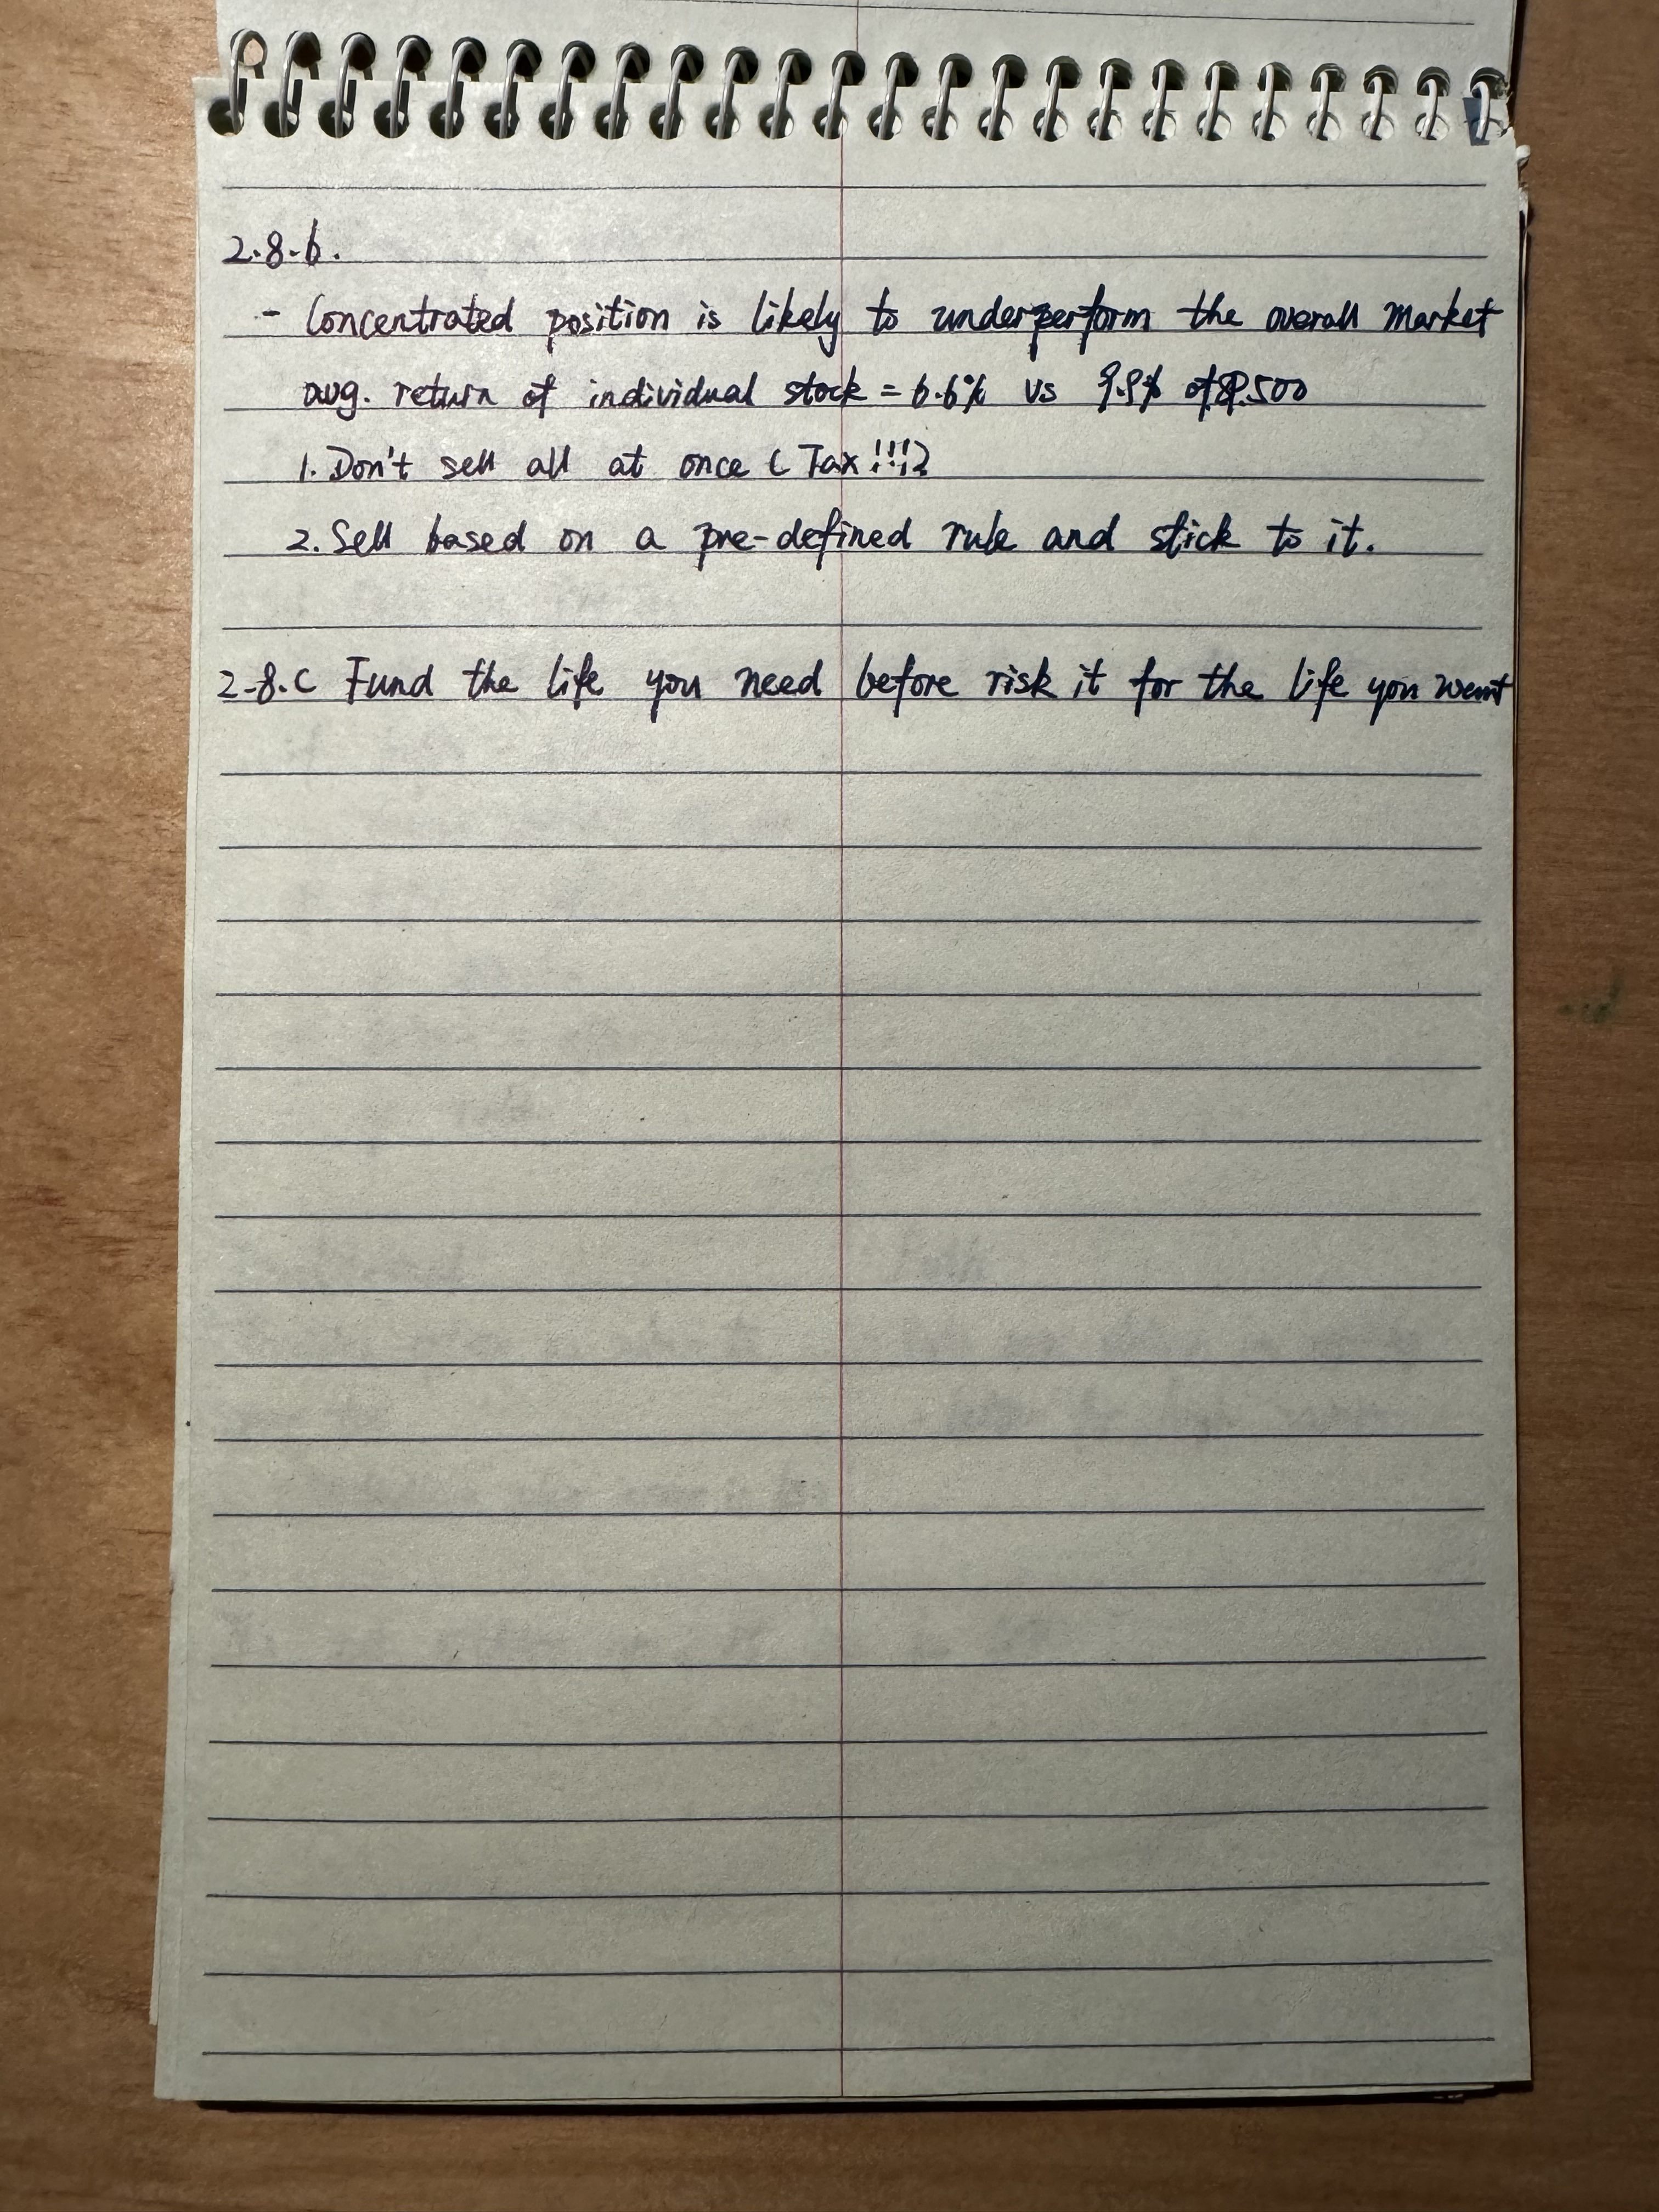 2.8.b.
- Concentrated position is likely to underperform the overall market
avg. return of individual stock = 6.6% vs 9.9% of SP.500
1. Don't sell all at once ( Tax !!!)
2. Sell based on a pre-defined rule and stick to it.
2.8.C Fund the life you need before risk it for the life you want